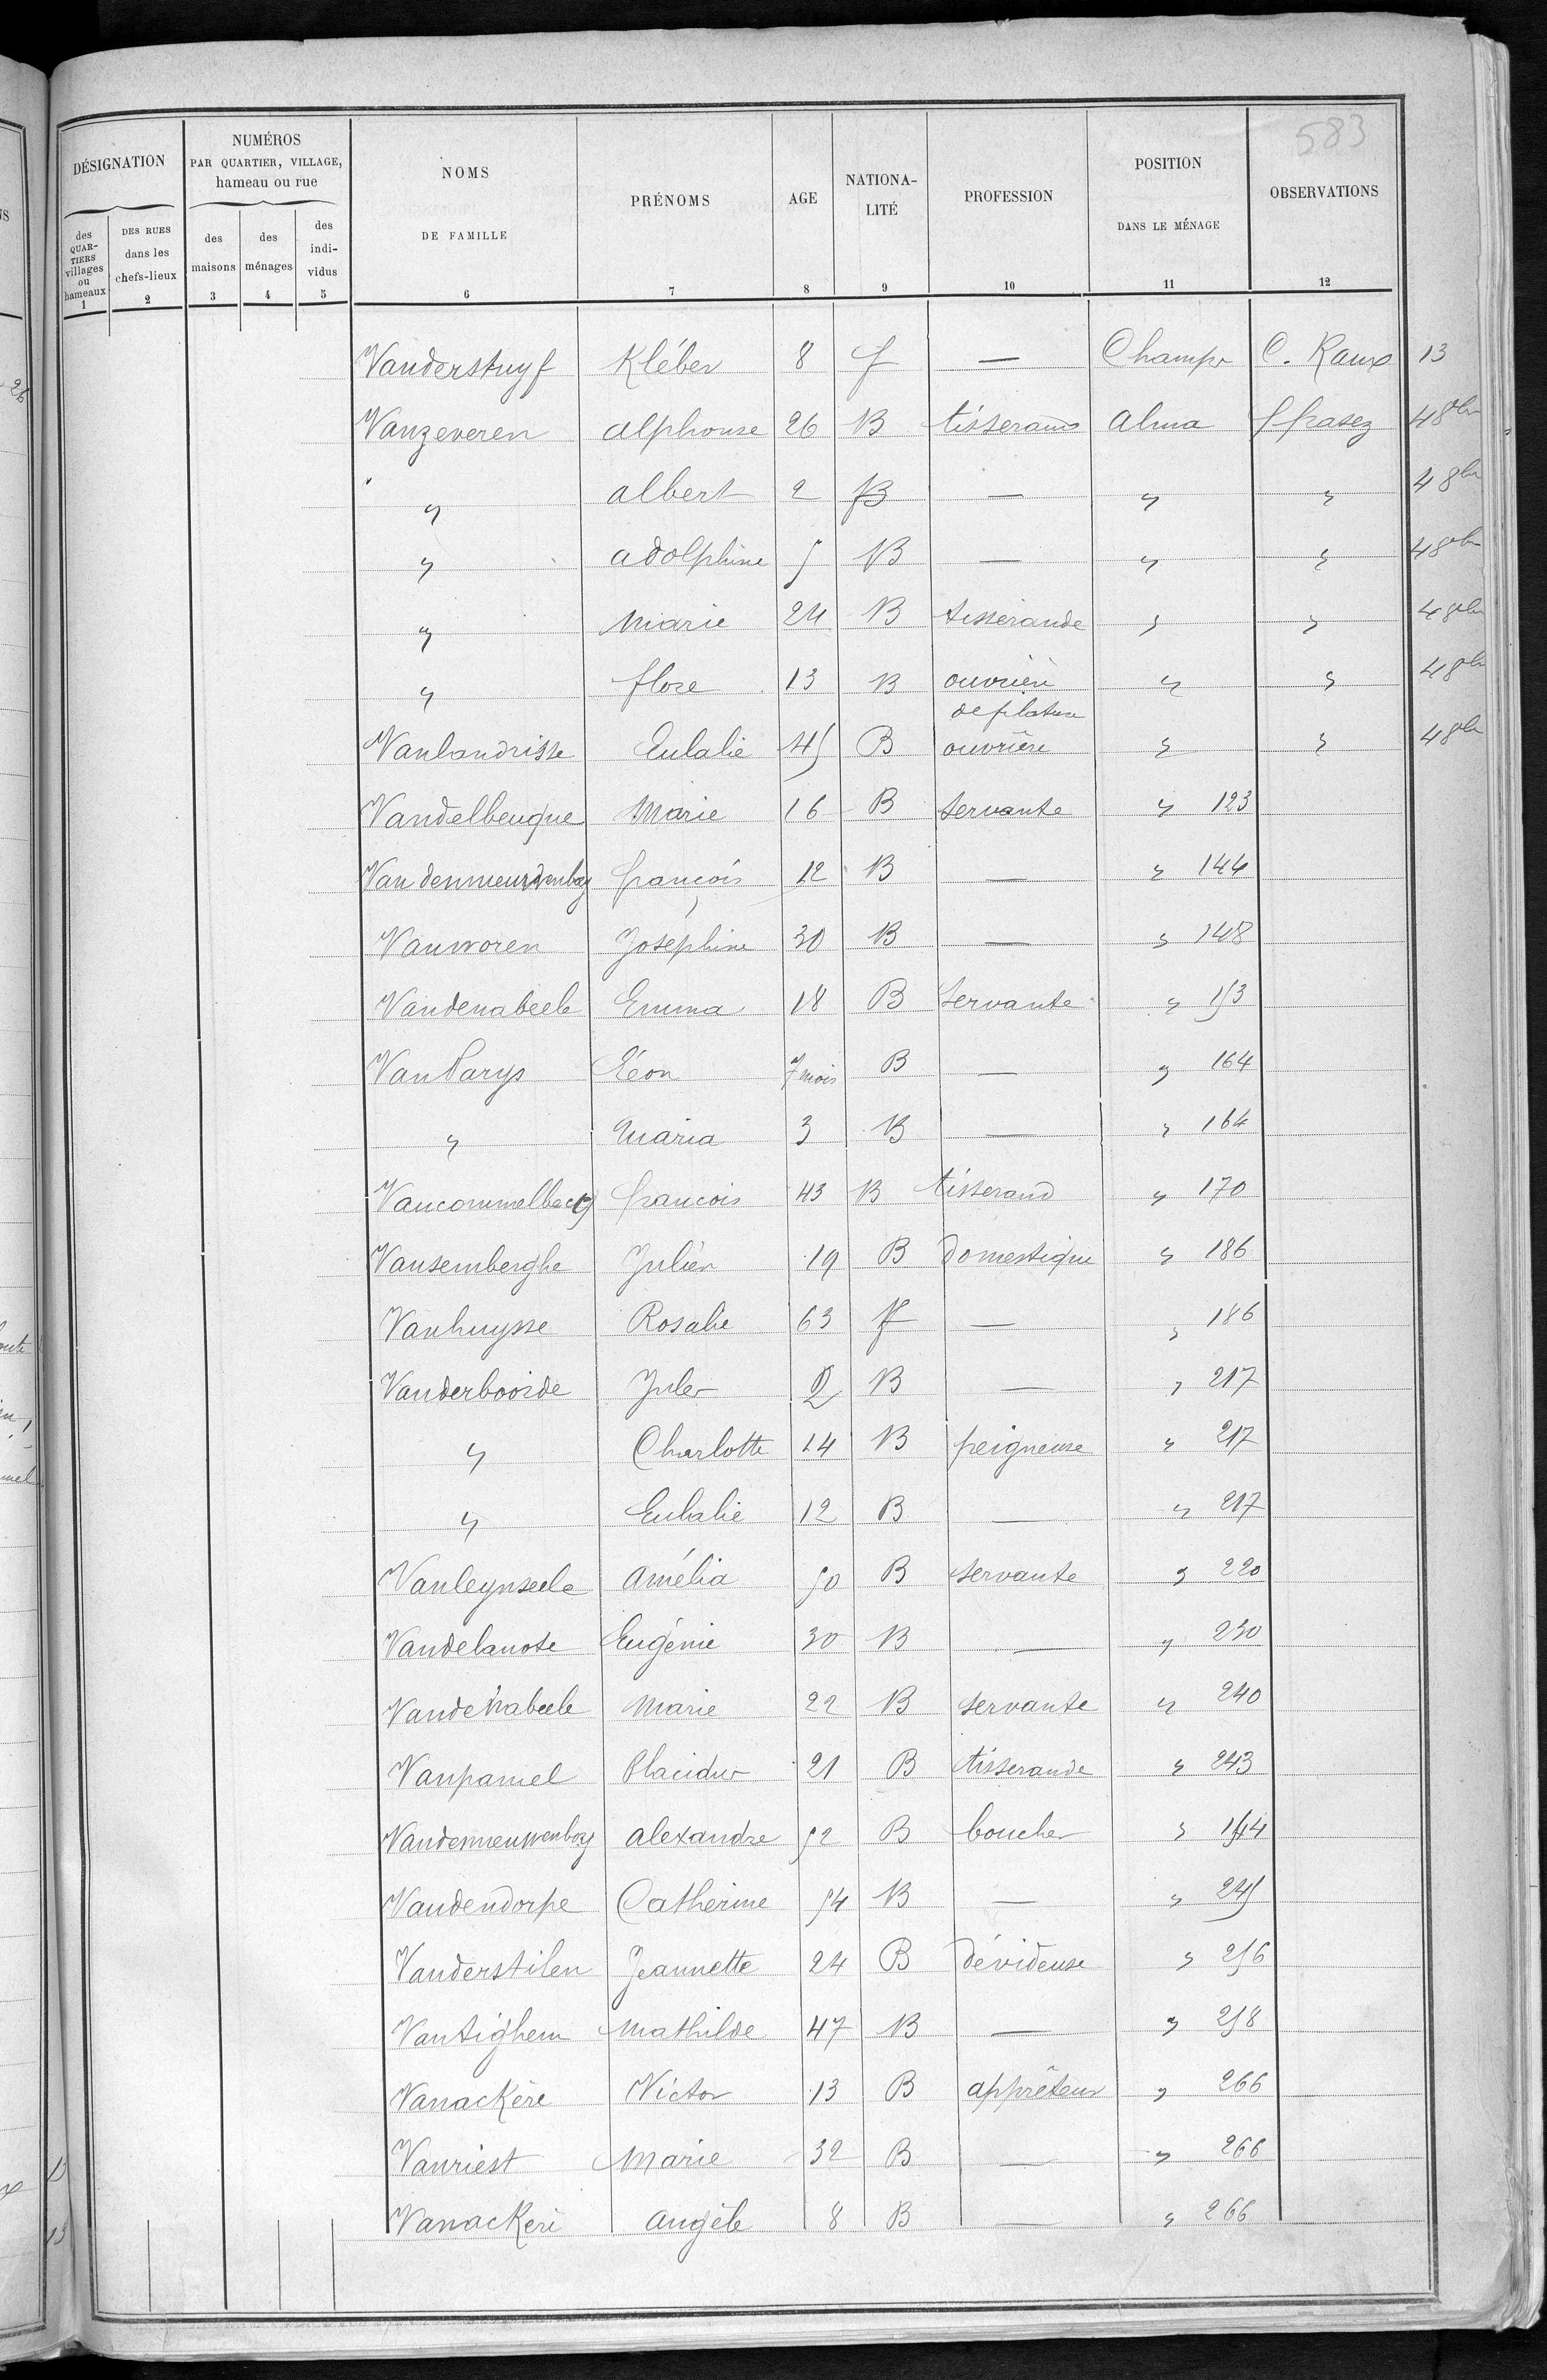 583
DÉSIGNATION
NUMÉROS
PAR QUARTIER, VILLAGE,
hameau ou rue
NOMS
DE FAMILLE
PRÉNOMS
AGE
NATIONA-
LITÉ
PROFESSION
POSITION
DANS LE MÉNAGE
OBSERVATIONS
des
QUAR-
TIERS
villages
ou
hameaux
DES RUES
dans les
chefs-lieux
des
maisons
des
ménages
des
indi-
vidus
1 2 3 4 5 6 7 8 9 10 11 12
Vanderstuyf Kléber 8 f — Champs C. Raux 13
Vanzeveren alphonse 26 B tisserand alma f frasez 48bis
" albert 2 B — " " 48bis
" adolphine 5 B — " " 48bis
" Marie 24 B tisserande " " 48bis
" flore 13 B ouvrière de filature " " 48bis
Vanlandrisse Eulalie 45 B ouvrière " " 48bis
Vandelbeuque Marie 16 B servante " 123
françois 12 B — " 144
Vanworen Joséphine 30 B — " 148
Vandenabeele Emma 18 B servante " 153
VanParys Léon 7 mois B — " 164
" Maria 3 B — " 164
francois 43 B tisserand " 170
Vansemberghe Julien 19 B domestique " 186
Vanhuysse Rosalie 63 f — " 186
Vanderboorde Jules 2 B — " 217
" Charlotte 14 B peigneuse " 217
" Eulalie 12 B — " 217
Vanleynseele amélia 50 B servante " 220
Vandelanote Eugénie 30 B — " 230
Vandenabeele Marie 22 B servante " 240
Vanpamel Placidie 21 B tisserande " 243
alexandre 52 B boucher " 144
Vandendorpe Catherine 54 B — " 245
Vanderstilen Jeannette 24 B dévideuse " 256
Vantighem Mathilde 47 B — " 258
Vanackère Victor 13 B apprêteur " 266
Vanriest Marie 32 B — " 266
Vanackère angèle 8 B — " 266